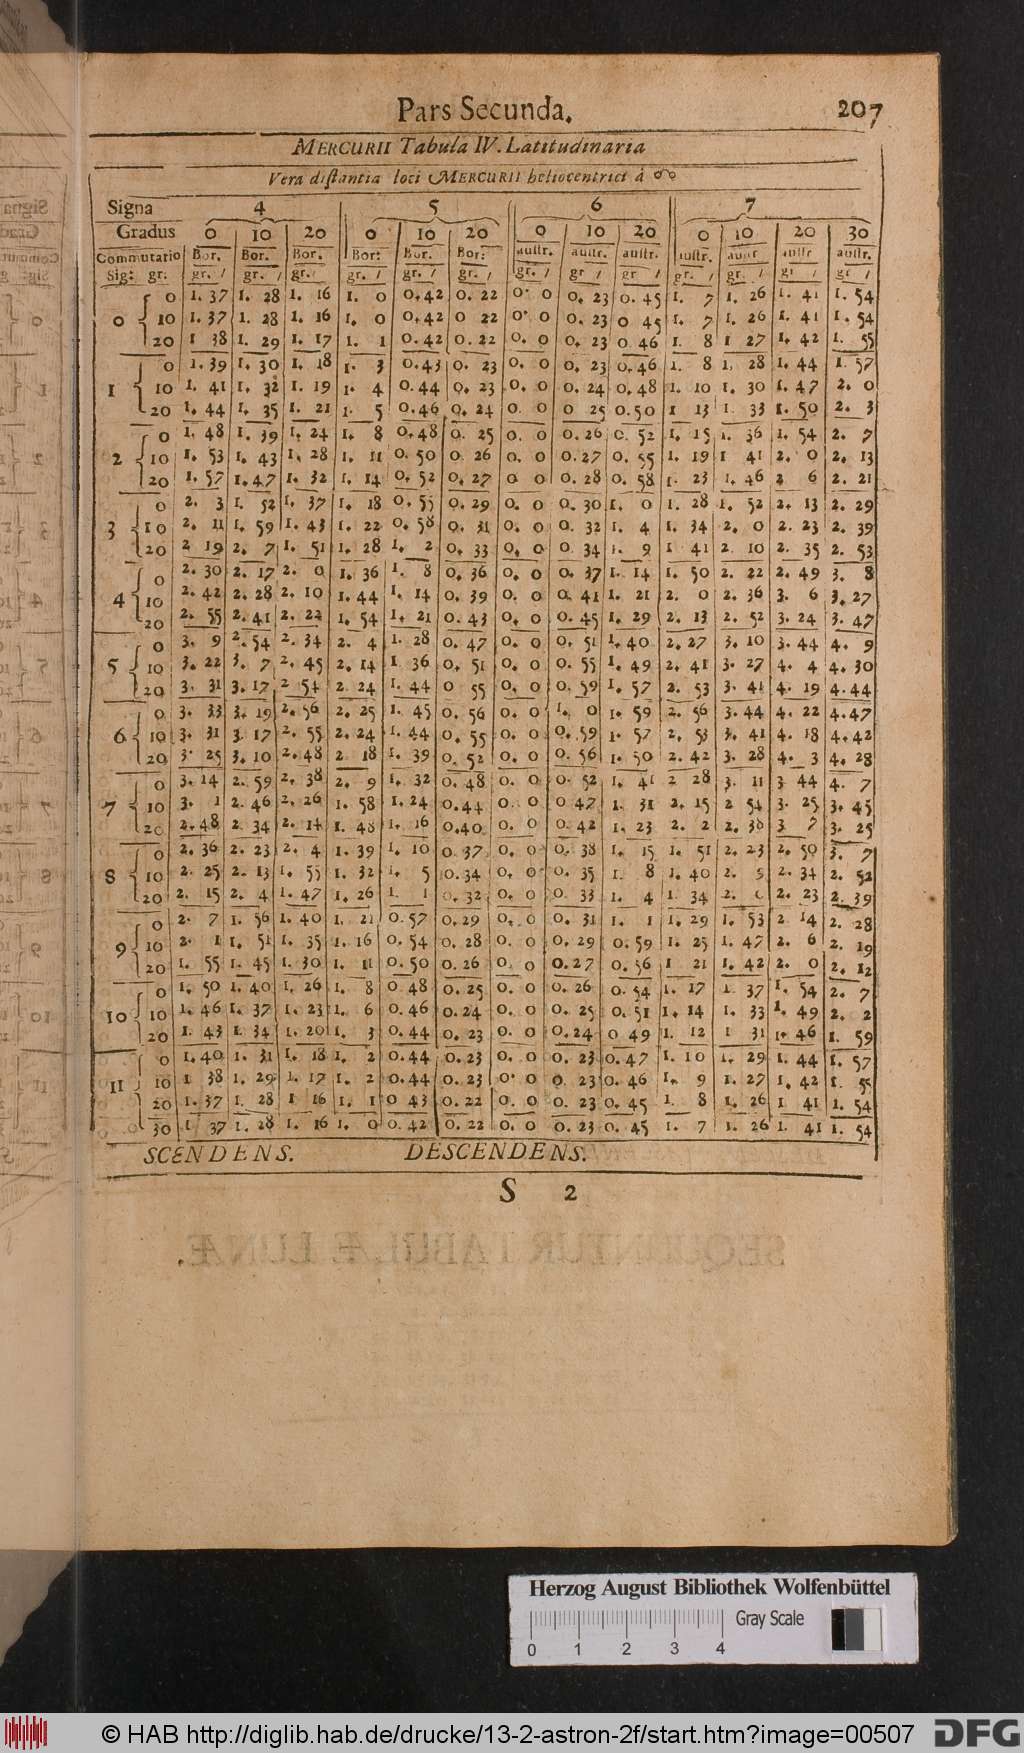 Pars Secunda. 207
MERCURII Tabula IV. Latitudinaria
Vera distantia loci MERCURII heliocentrici à ☊
Signa 4 5 6 7
Gradus 0 10 20 0 10 20 0 10 20 0 10 20 30
Commutatio Bor. Bor. Bor. Bor: Bor. Bor: austr. austr. austr. austr. austr. austr. austr.
Sig: gr. gr. / gr. / gr. / gr. / gr. / gr. / gr. / gr / gr / gr. / gr. / gr / gr /
0 0 1. 37 1. 28 1. 16 1. 0 0.42 0. 22 0. 0 0. 23 0. 45 1. 7 1. 26 1. 41 1. 54
10 1. 37 1. 28 1. 16 1. 0 0.42 0 22 0. 0 0. 23 0 45 1. 7 1. 26 1. 41 1. 54
20 1 38 1. 29 1. 17 1. 1 0.42 0. 22 0. 0 0. 23 0 46 1. 8 1 27 1. 42 1. 55
1 0 1. 39 1. 30 1. 18 1. 3 0.43 0. 23 0. 0 0. 23 0.46 1. 8 1. 28 1. 44 1. 57
10 1. 41 1. 32 1. 19 1. 4 0.44 0. 23 0. 0 0. 24 0.48 1. 10 1. 30 1. 47 2. 0
20 1. 44 1. 35 1. 21 1. 5 0.46 0. 24 0. 0 0 25 0.50 1 13 1. 33 1. 50 2. 3
2 0 1. 48 1. 39 1. 24 1. 8 0.48 0. 25 0. 0 0.26 0. 52 1. 15 1. 36 1. 54 2. 7
10 1. 53 1. 43 1. 28 1. 11 0. 50 0 26 0. 0 0.27 0. 55 1. 19 1 41 2. 0 2. 13
20 1. 57 1.47 1. 32 1. 14 0. 52 0. 27 0 0 0. 28 0. 58 1. 23 1. 46 2 6 2. 21
3 0 2. 3 1. 52 1. 37 1. 18 0. 55 0. 29 0. 0 0. 30 1. 0 1. 28 1. 52 2. 13 2. 29
10 2. 11 1. 59 1. 43 1. 22 0. 58 0. 31 0. 0 0. 32 1. 4 1. 34 2. 0 2. 23 2. 39
20 2 19 2. 7 1. 51 1. 28 1. 2 0. 33 0. 0 0. 34 1. 9 1 41 2 10 2. 35 2. 53
4 0 2. 30 2. 17 2. 0 1. 36 1. 8 0. 36 0. 0 0. 37 1. 14 1. 50 2. 22 2. 49 3. 8
10 2. 42 2. 28 2. 10 1. 44 1. 14 0. 39 0. 0 0. 41 1. 21 2. 0 2. 36 3. 6 3. 27
20 2. 55 2. 41 2. 22 1. 54 1. 21 0. 43 0. 0 0. 45 1. 29 2. 13 2. 52 3. 24 3. 47
5 0 3. 9 2. 54 2. 34 2. 4 1. 28 0. 47 0. 0 0. 51 1. 40 2. 27 3. 10 3. 44 4. 9
10 3. 22 3. 7 2. 45 2. 14 1 36 0. 51 0. 0 0. 55 1. 49 2. 41 3. 27 4. 4 4. 30
20 3. 31 3. 17 2 54 2. 24 1. 44 0 55 0. 0 0. 59 1. 57 2. 53 3. 41 4. 19 4. 44
6 0 3. 33 3. 19 2. 56 2. 25 1. 45 0. 56 0. 0 1. 0 1. 59 2. 56 3. 44 4. 22 4. 47
10 3. 31 3. 17 2. 55 2. 24 1. 44 0. 55 0. 0 0. 59 1. 57 2. 53 3. 41 4. 18 4. 42
20 3. 25 3. 10 2. 48 2. 18 1. 39 0. 52 0. 0 0. 56 1. 50 2. 42 3. 28 4. 3 4. 28
7 0 3. 14 2. 59 2. 38 2. 9 1. 32 0. 48 0. 0 0. 52 1. 41 2 28 3. 11 3 44 4. 7
10 3. 1 2. 46 2. 26 1. 58 1. 24 0.44 0. 0 0 47 1. 31 2. 15 2 54 3. 25 3. 45
20 2. 48 2. 34 2. 14 1. 48 1. 16 0.40 0. 0 0. 42 1. 23 2. 2 2. 38 3 7 3. 25
8 0 2. 36 2. 23 2. 4 1. 39 1. 10 0. 37 0. 0 0. 38 1. 15 1. 51 2. 23 2. 50 3. 7
10 2. 25 2. 13 1. 55 1. 32 1. 5 0. 34 0. 0 0. 35 1. 8 1. 40 2. 5 2. 34 2. 52
20 2. 15 2. 4 1. 47 1. 26 1. 1 0. 32 0. 0 0. 33 1. 4 1. 34 2. 2. 23 2. 39
9 0 2. 7 1. 56 1. 40 1. 21 0. 57 0. 29 0. 0 0. 31 1. 1 1. 29 1. 53 2 14 2. 28
10 2. 1 1. 51 1. 35 1. 16 0. 54 0. 28 0. 0 0. 29 0. 59 1. 25 1. 47 2. 6 2. 19
20 1. 55 1. 45 1. 30 1. 11 0. 50 0. 26 0. 0 0. 27 0. 56 1 21 1. 42 2. 0 2. 12
10 0 1. 50 1. 40 1. 26 1. 8 0 48 0. 25 0. 0 0. 26 0. 54 1. 17 1 37 1. 54 2. 7
10 1. 46 1. 37 1. 23 1. 6 0. 46 0. 24 0. 0 0. 25 0. 51 1. 14 1. 33 1. 49 2. 2
20 1. 43 1. 34 1. 20 1. 3 0. 44 0. 23 0. 0 0. 24 0 49 1. 12 1 31 1. 46 1. 59
11 0 1. 40 1. 31 1. 18 1. 2 0. 44 0. 23 0. 0 0. 23 0. 47 1. 10 1. 29 1. 44 1. 57
10 1 38 1. 29 1. 17 1. 2 0. 44 0. 23 0. 0 0. 23 0. 46 1. 9 1. 27 1. 42 1. 55
20 1. 37 1. 28 1 16 1. 1 0 43 0. 22 0. 0 0. 23 0. 45 1. 8 1. 26 1 41 1. 54
30 1 37 1. 28 1. 16 1. 0 0. 42 0. 22 0. 0 0. 23 0. 45 1. 7 1. 26 1. 41 1. 54
SCENDENS. DESCENDENS.
S 2
Herzog August Bibliothek Wolfenbüttel
Gray Scale
0 1 2 3 4
© HAB http://diglib.hab.de/drucke/13-2-astron-2f/start.htm?image=00507 DFG